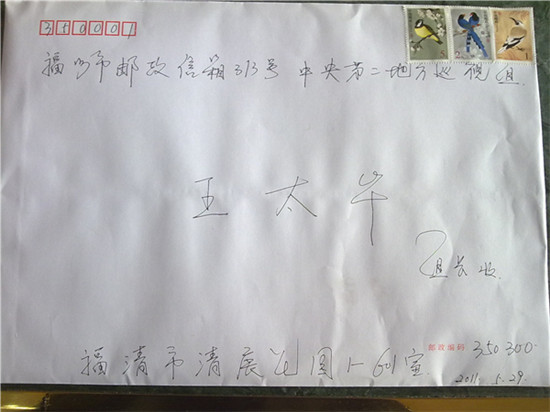 350001
福州市邮政信箱313号 中央第二地方巡视组
王太华
组长收
邮政编码 350300
福清市清展花园1-601室
2011.5.29.